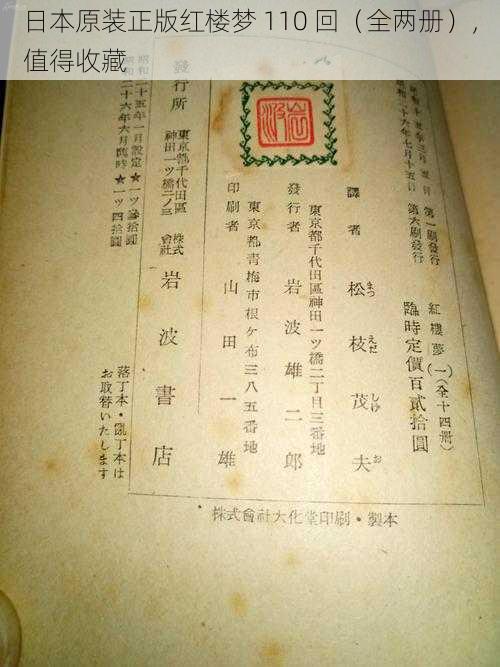 日本原装正版红楼梦 110 回（全两册），
值得收藏
年三月
日
第一刷發行
昭和二十六年七月十五日
第六刷發行
紅樓夢(一)(全十四冊)
臨時定價百貳拾圓
譯者 松枝茂夫
まつ えだ しげ お
東京都千代田區神田一ツ橋二丁目三番地
發行者 岩波雄二郎
東京都青梅市根ヶ布三八五番地
印刷者 山田一雄
岩波
發行所
東京都千代田區
神田一ツ橋二ノ三
株式
會社
岩波書店
昭和二十五年一月設定★一ツ參拾圓
昭和二十六年六月臨時★一ツ四拾圓
落丁本・亂丁本は
お取替いたします
株式會社大化堂印刷・製本